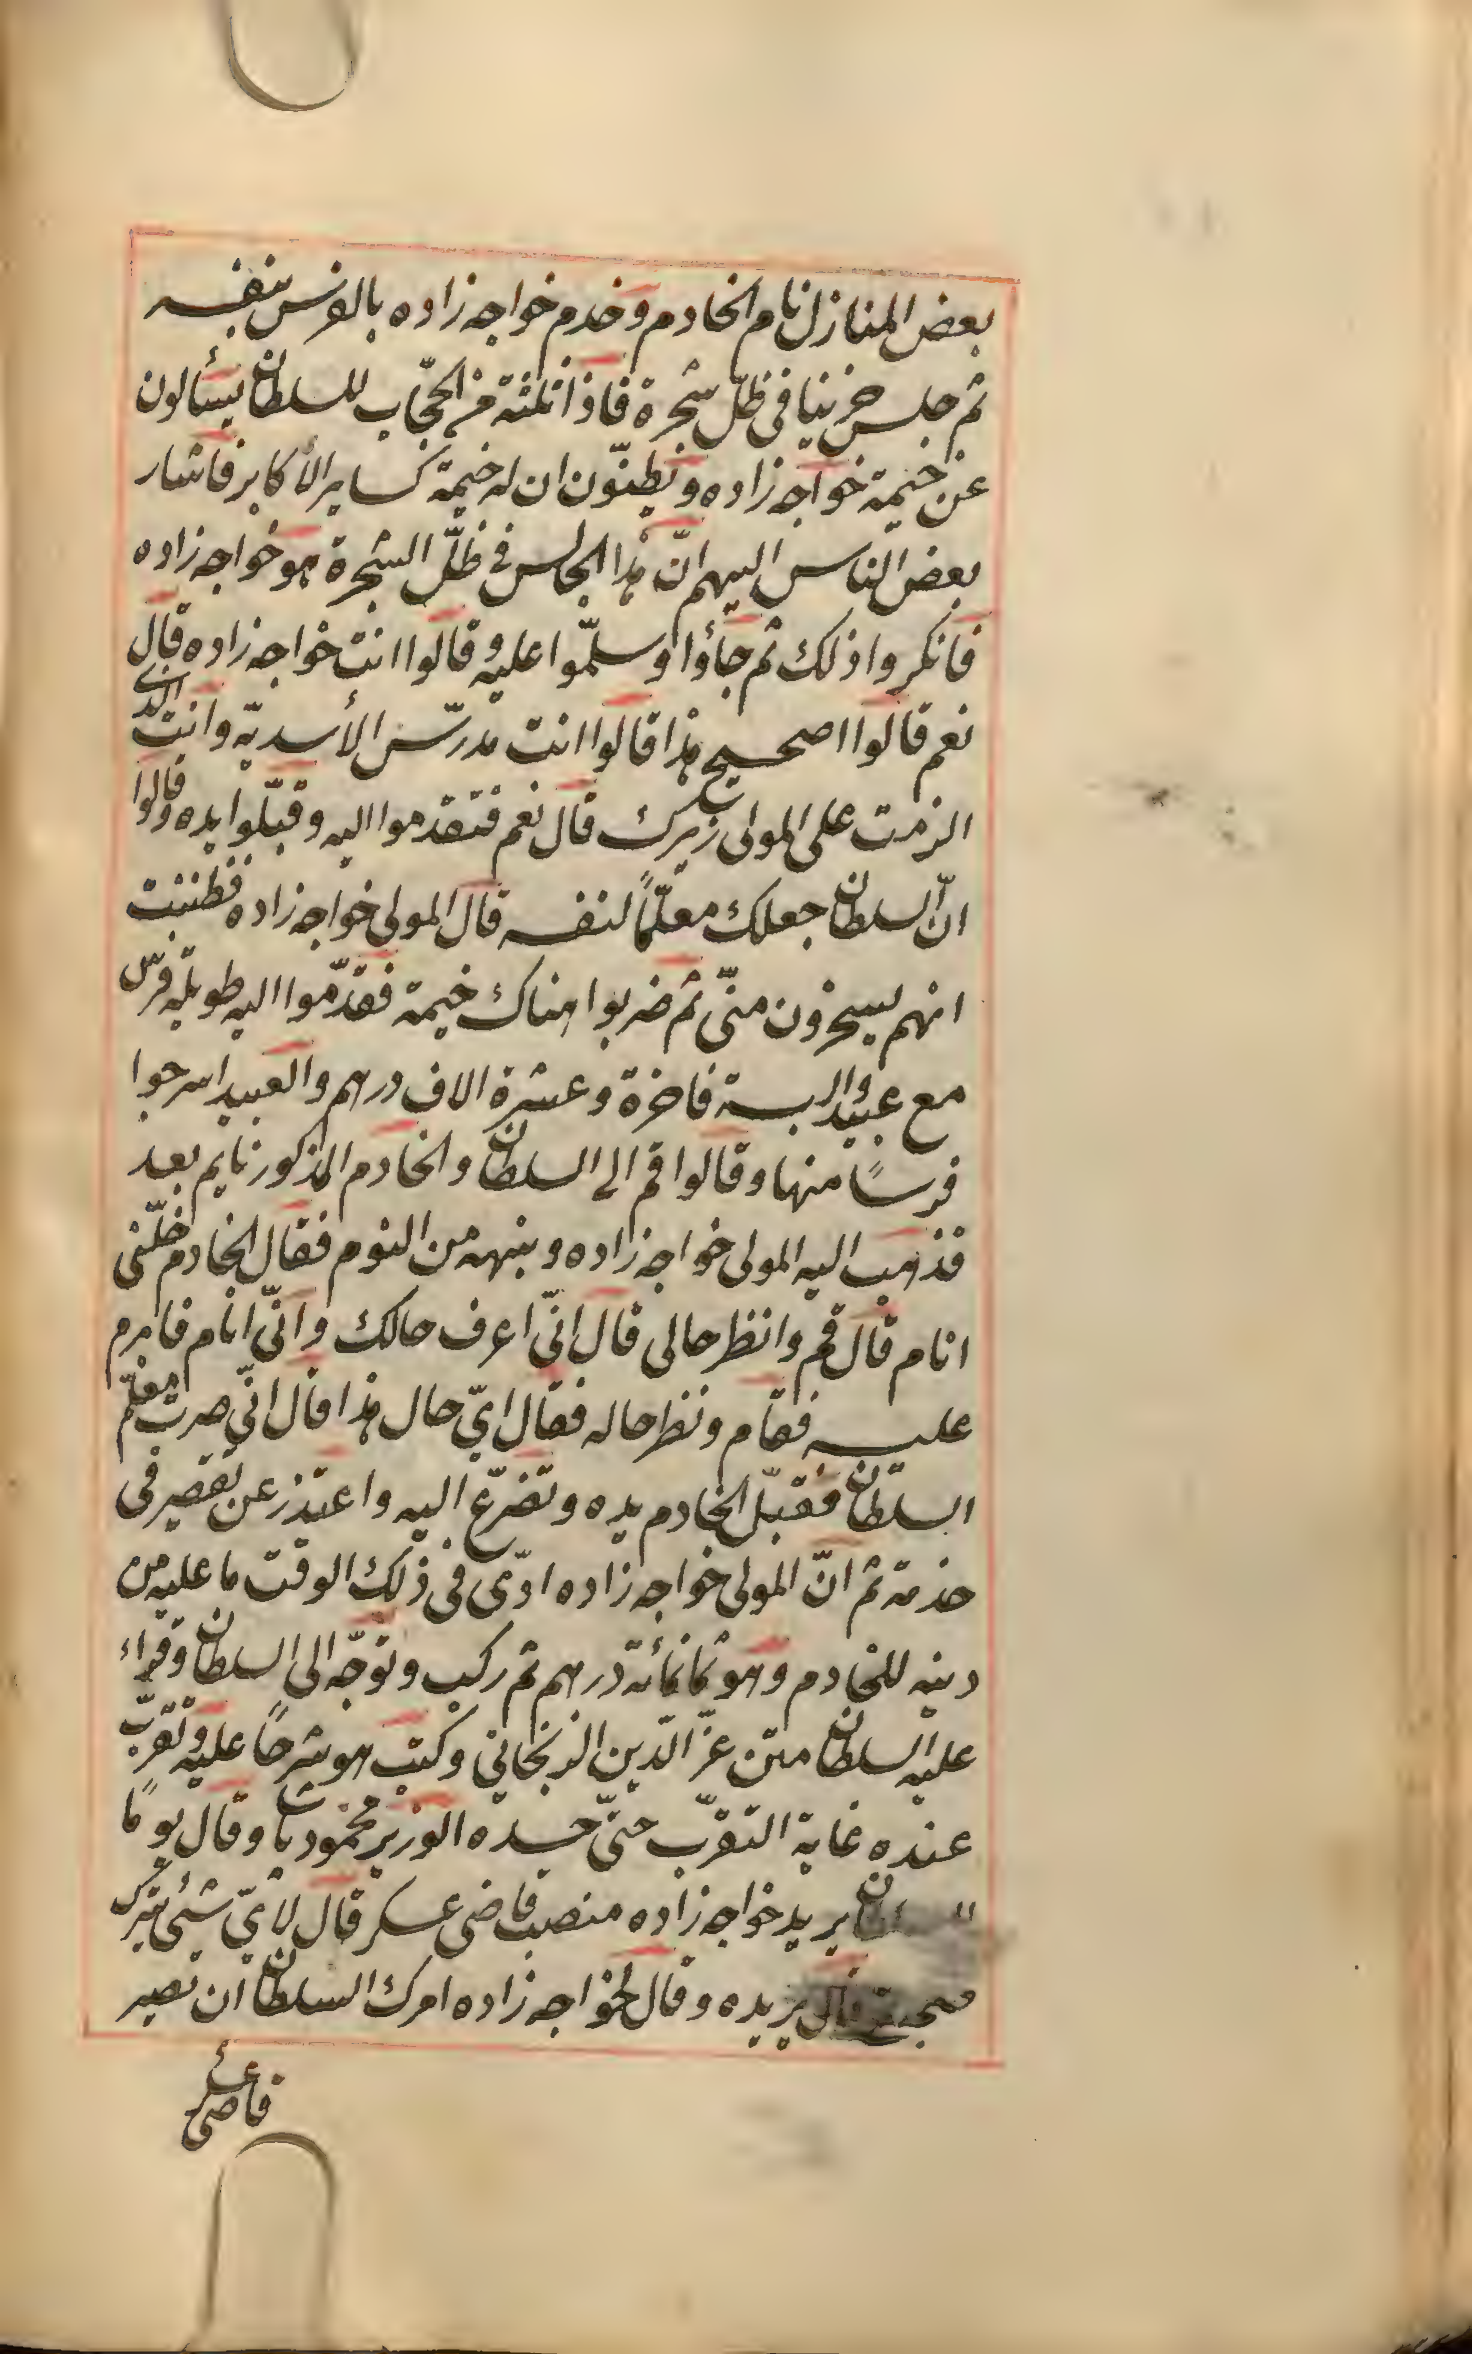 بعض المنازل نام الخادم وخدم خواجه زاده بالفرس بنفسه
ثم جلس حزينا فى ظلّ شجرة فاذا ثلثة من الحجّاب للسلطان يسألون
عن خيمة خواجه زاده ويظنّون ان له خيمة كساير الأكابر فاشار
بعض الناس اليهم انّ هذا الجالس فى ظلّ الشجرة هو خواجه زاده
فانكروا ذلك ثم جاؤا وسلّموا عليه وقالوا انت خواجه زاده قال
نعم قالوا اصحيح هذا قالوا انت مدرّس الأسديّه وانت الذى
الزمت على المولى زيرك قال نعم فتقدموا اليه وقبّلوا يده وقالوا
انّ السلطان جعلك معلّمًا لنفسه قال المولى خواجه زاده فظننت
انهم يسخرون منّى ثم ضربوا هناك خيمة فقدّموا اليه طويلة فرس
مع عبيد والبسة فاخرة وعشرة الاف درهم والعبيد اسرجوا
فرسًا منها وقالوا قم الى السلطان والخادم المذكور نايم بعد
فذهب اليه المولى خواجه زاده وينبهه من النوم فقال الخادم خلّنى
انام قال قم وانظر حالى قال انّى اعرف حالك وانّى انام فابرم
عليه فقام ونظر حاله فقال اىّ حال هذا قال انّى صرت معلّم
السلطان فقبّل الخادم يده وتضرّع اليه واعتذر عن تقصير فى
خدمة ثم انّ المولى خواجه زاده ادّى فى ذلك الوقت ما عليه من
دينه للخادم وهو ثمانمائة درهم ثم ركب وتوجّه الى السلطان وقراء
عليه السلطان متن عزّ الدّين الزنجانى وكتب هو شرحًا عليه وتقرّب
عنده غاية التقرّب حتّى حسده الوزير محمود پاشا وقال يومًا
السلطان يريد خواجه زاده منصب قاضى عسكر قال لاىّ شيئ يترك
صحبتى قال يريده وقال لخواجه زاده امرك السلطان ان تصير
قاضى عسكر